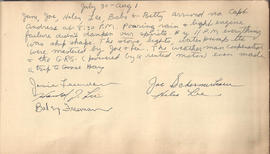 July 30 - Aug 1
Jane, Joe, Helen Lee, Babs & Betty arrived via Capt
Andrews at 8:30 P.M. Pouring rain & light engine
failure didn't dampen our spirits. By 11 P.M. everything
was ship shape. The stove, lights, water pump etc
were mastered by Joe & Lee. The weather man cooperated
& the GRS (powered by a rented motor) even made
a trip to Goose Bay
Lee
Joe
Helen Lee
Betsy Freeman